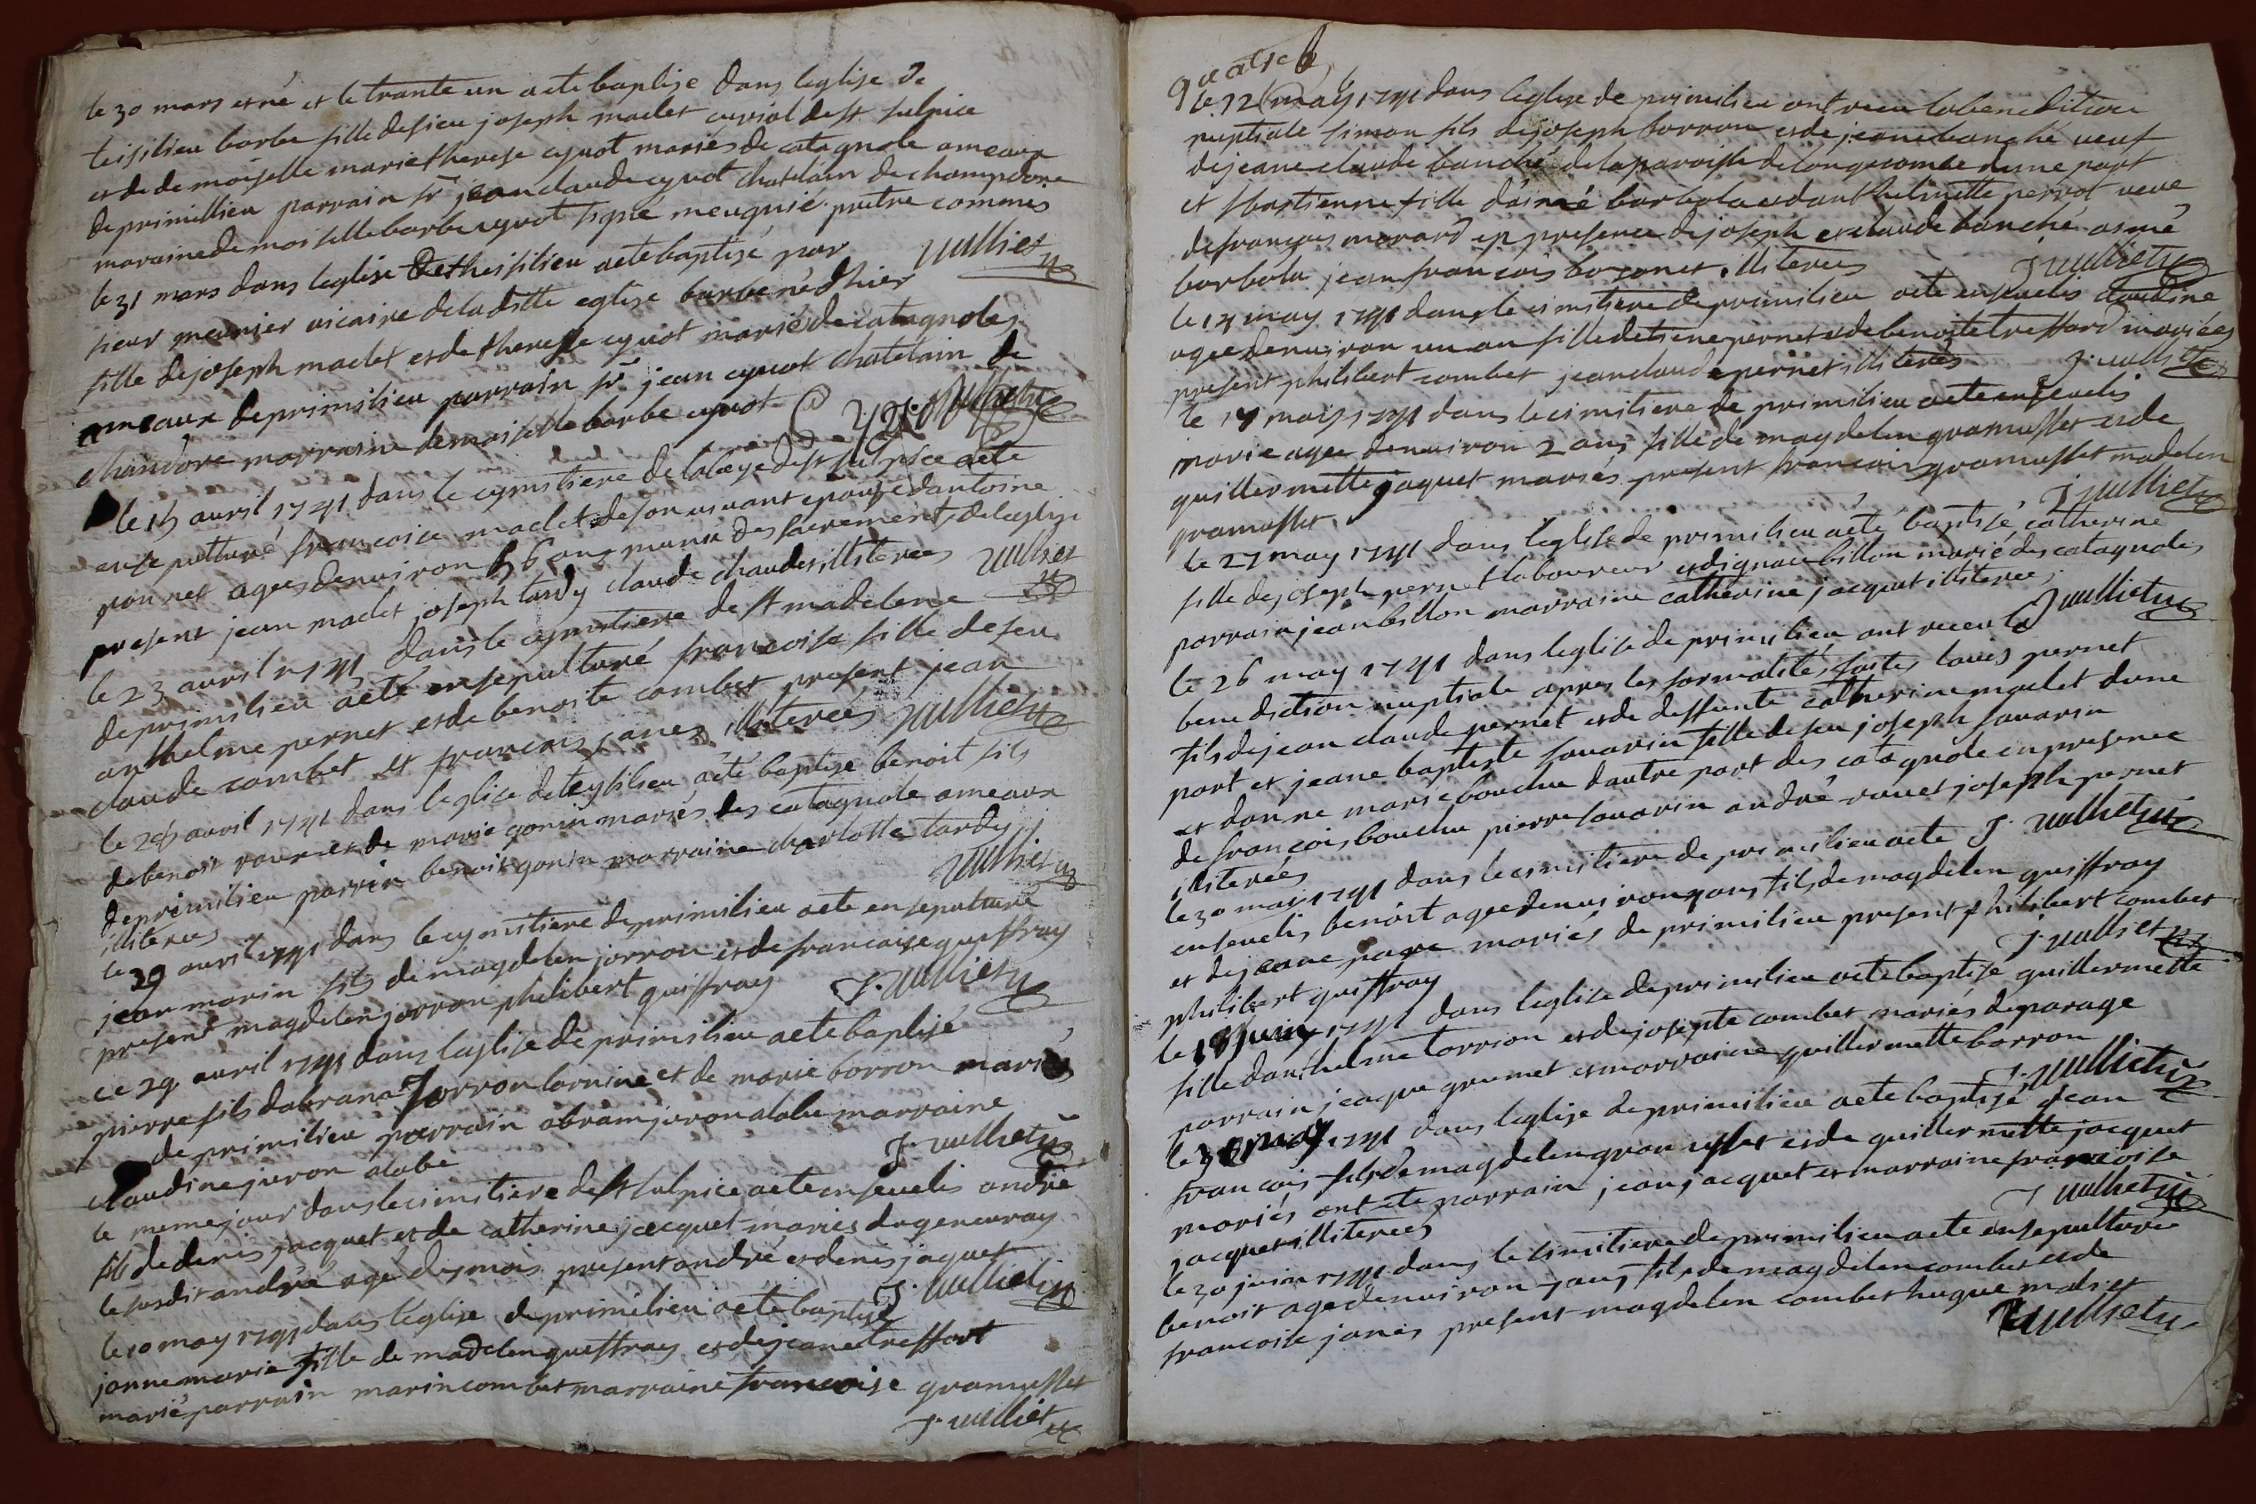 le 30 mars est né et le trante un a ete baptise dans leglise de
teisilieu barbe fille de sieu joseph maclet curial de st sulpice
et de demoiselle marie therese cyvot mariés de catagnole ameaux
de primillieu parrain sr jean claude cyvot chatelain de champdore
maraine demoiselle barbe cyvot signé meugnié prêtre commis
vulliet
le 31 mars dans leglise de theisilieu a ete baptisé par
sieur meunier vicaire de la ditte eglise barbe né dhier
fille de joseph maclet et de therese cyvot marié de catagnoles
ameaux de primilieu parrain sr jean cyvot chatelain de
chandore marraine demoiselle barbe cyvot
le 15 avril 1791 dans le cymitiere de labeye de st sulpice a ete
ensepulturé francoise maclet de son vivant epouse dantoine
gonnet agee denviron 56 ans munie des sacrements de leglise
present jean maclet joseph tardy claude chaudet illiterees vulliet
le 23 avril 1791 dans le cymitiere de st madelene
de primilieu a eté ensepulturé francoise fille de feu
anthelme pernet et de benoite combet present jean
claude combet et francois janes illiterees vulliet
le 28 avril 1791 dans leglise de teysilieu a eté baptise benoit fils
de benoit ravier et de marie gonin mariés des catagnole ameaux
de primilieu parrin benoit gonin marraine charlotte tardy
illiterees
vulliet
le 29 avril 1791 dans le cymitiere de primilieu a ete ensepulturé
jean marin fils de magdelen jorron et de francoise guiffray
present magdelen jorron philibert guiffray J. vulliet
ce 29 avril 1791 dans leglise de primilieu a ete baptisé
pierre fils dabrana jorron lornine et de marie borron mariés
de primilieu parrain abram joron alabe marraine
claudine joron alabe
J. vulliet
le meme jour dans le cimitiere de st sulpice a ete ensevelis andré
fils de denis jacquet et de catherine jacquet mariés du genevray
le susdit andré agé de mois present andré et denis jaquet
J. vulliet
le 10 may 1791 dans leglise de primilieu a ete baptisé
janne marie fille de madelen gueffray et de jeane treffort
marié parrain marin combet marraine francoise gramusset
J. vulliet
quatre
le 12 may 1791 dans leglise de primilieu ont recu la benedition
nuptiale simon fils de joseph borron et de jeane banché veuf
de jeane claude banché de la paroisse de longecombe dune part
et sbastienne fille daimé barbola et danthelmette perrot veve
de françois morard en presence de joseph et claude banché aimé
barbola jean francois boconet illiterees J vulliet
le 14 may 1791 dans le cimitiere de primilieu a ete ensevelis claudine
agee denviron un an fille detiene pernet et de benoite treffort mariées
present philibert combet jean claude pernet illiterés J. vulliet
le 17 mois 1791 dans le cimitiere de primilieu a ete ensevelis
marie agee denviron 2 ans fille de magdelen gramusset et de
guillermette jaquet mariés present francois gramusset madelen
gramusset
J vulliet
le 27 may 1791 dans leglise de primilieu a eté baptisé catherine
fille de joseph pernet laboureur et dignace billon marié des catagnoles
parrain jean billon marraine catherine jacquet illiterees
J vulliet
le 26 may 1791 dans leglise de primilieu ont receu la
benediction nuptiale apres les formalités faites louis pernet
fils de jean claude pernet et de deffunte catherine maclet dune
part et jeane baptiste souvarin fille de feu joseph souvarin
et danne marie bouchu dautre part des catagnole en presence
de francois bouchu pierre souvarin andré ravet joseph pernet
illiterées
J. vulliet
le 30 mai 1791 dans le cimitiere de primilieu a ete
ensevelis benoist age denviron ans fils de magdelen guiffray
et de jeane page mariés de primilieu present philibert combet
philibert guiffray
J. vulliet
le 18 juin 1791 dans leglise de primilieu a ete baptise guillermette
fille danthelme torrion et de josepte combet mariés de parage
parrain jacque grumet et marraine guillermette borron
J. vulliet
le 30 may 1791 dans leglise de primilieu a ete baptisé jean
francois fils de magdelen gramusset et de guillermette jacquet
mariés ont ete parrain jean jacquet et marraine francoise
jacquet illiterees
J vulliet
le 30 juin 1791 dans le cimitiere de primilieu a ete ensepulturé
benoit age denviron 7 ans fils de magdelen combet et de
francoise janes present magdelen combet hugue maliet
J vulliet